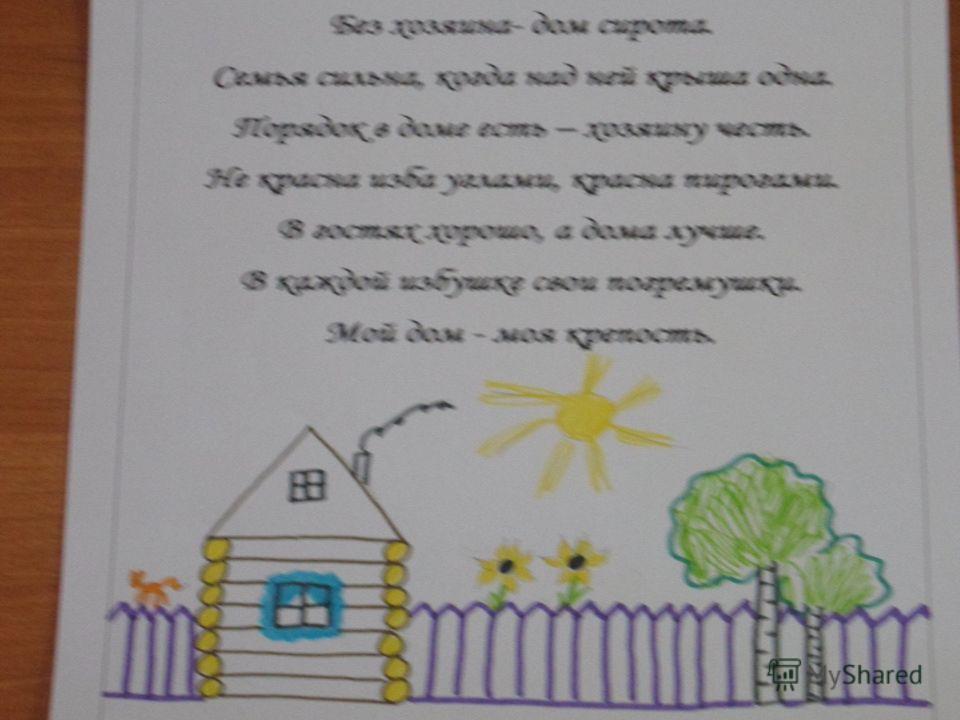 Без хозяина- дом сирота.
Семья сильна, когда над ней крыша одна.
Порядок в доме есть – хозяину честь.
Не красна изба углами, красна пирогами.
В гостях хорошо, а дома лучше.
В каждой избушке свои погремушки.
Мой дом - моя крепость.
MyShared